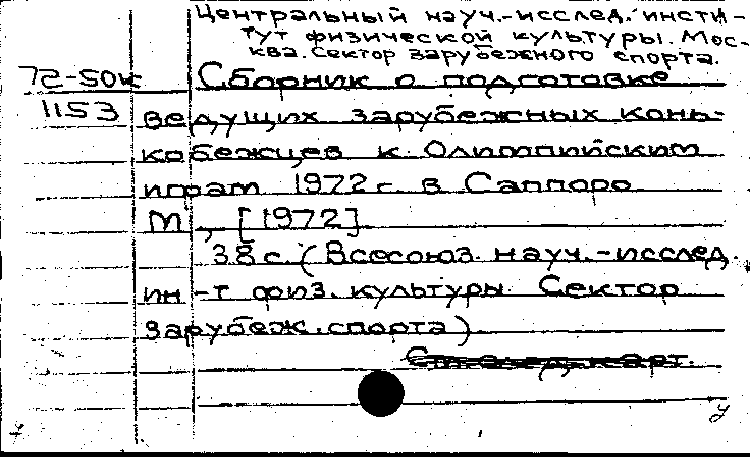 Центральный науч.-исслед. инсти-
тут физической культуры. Мос-
ква. Сектор зарубежного спорта.
72-50к Сборник о подготовке
1153 ведущих зарубежных конь-
кобежцев к Олимпийским
играм 1972 г. в Саппоро
М., [1972]
38 с. (Всесоюз. науч.-исслед.
ин-т физ. культуры. Сектор
зарубеж. спорта)
См. след. карт.